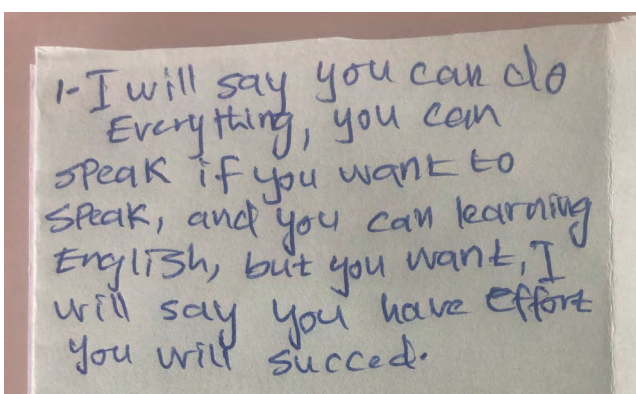 1-I will say you can do
Everything, you can
speak if you want to
speak, and you can learning
English, but you want, I
will say you have effort
you will succed.